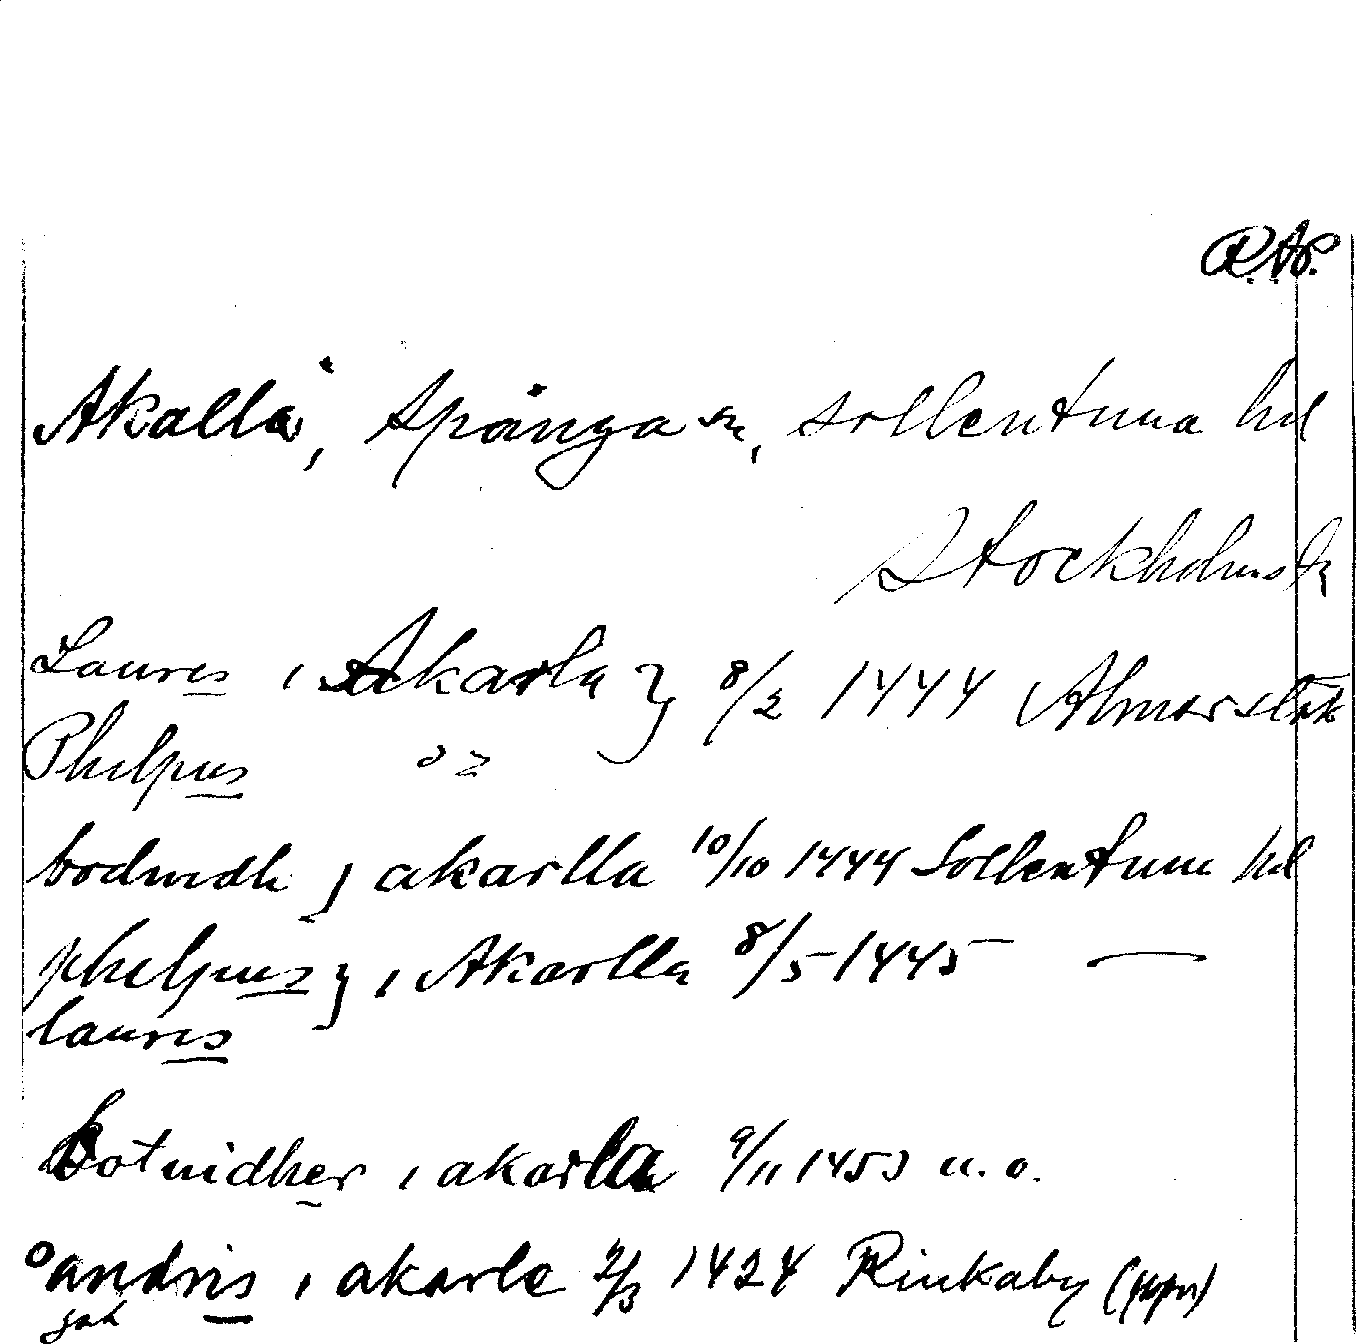 R.Ap.
Akalla, Spånga sn, Sollentuna hd
Stockholms
Lauris i Akarla } 8/2 1444 Almarstäk
Phelpus
bodwidh j akarlla 10/10 1444 Sollentuna hd
phelpus } i Akarlla 8/5 1445 —
lauris
botuidher i akarla 9/11 1453 u. o.
andris i akarle 2/3 1424 Rinkaby (ppr)
jak